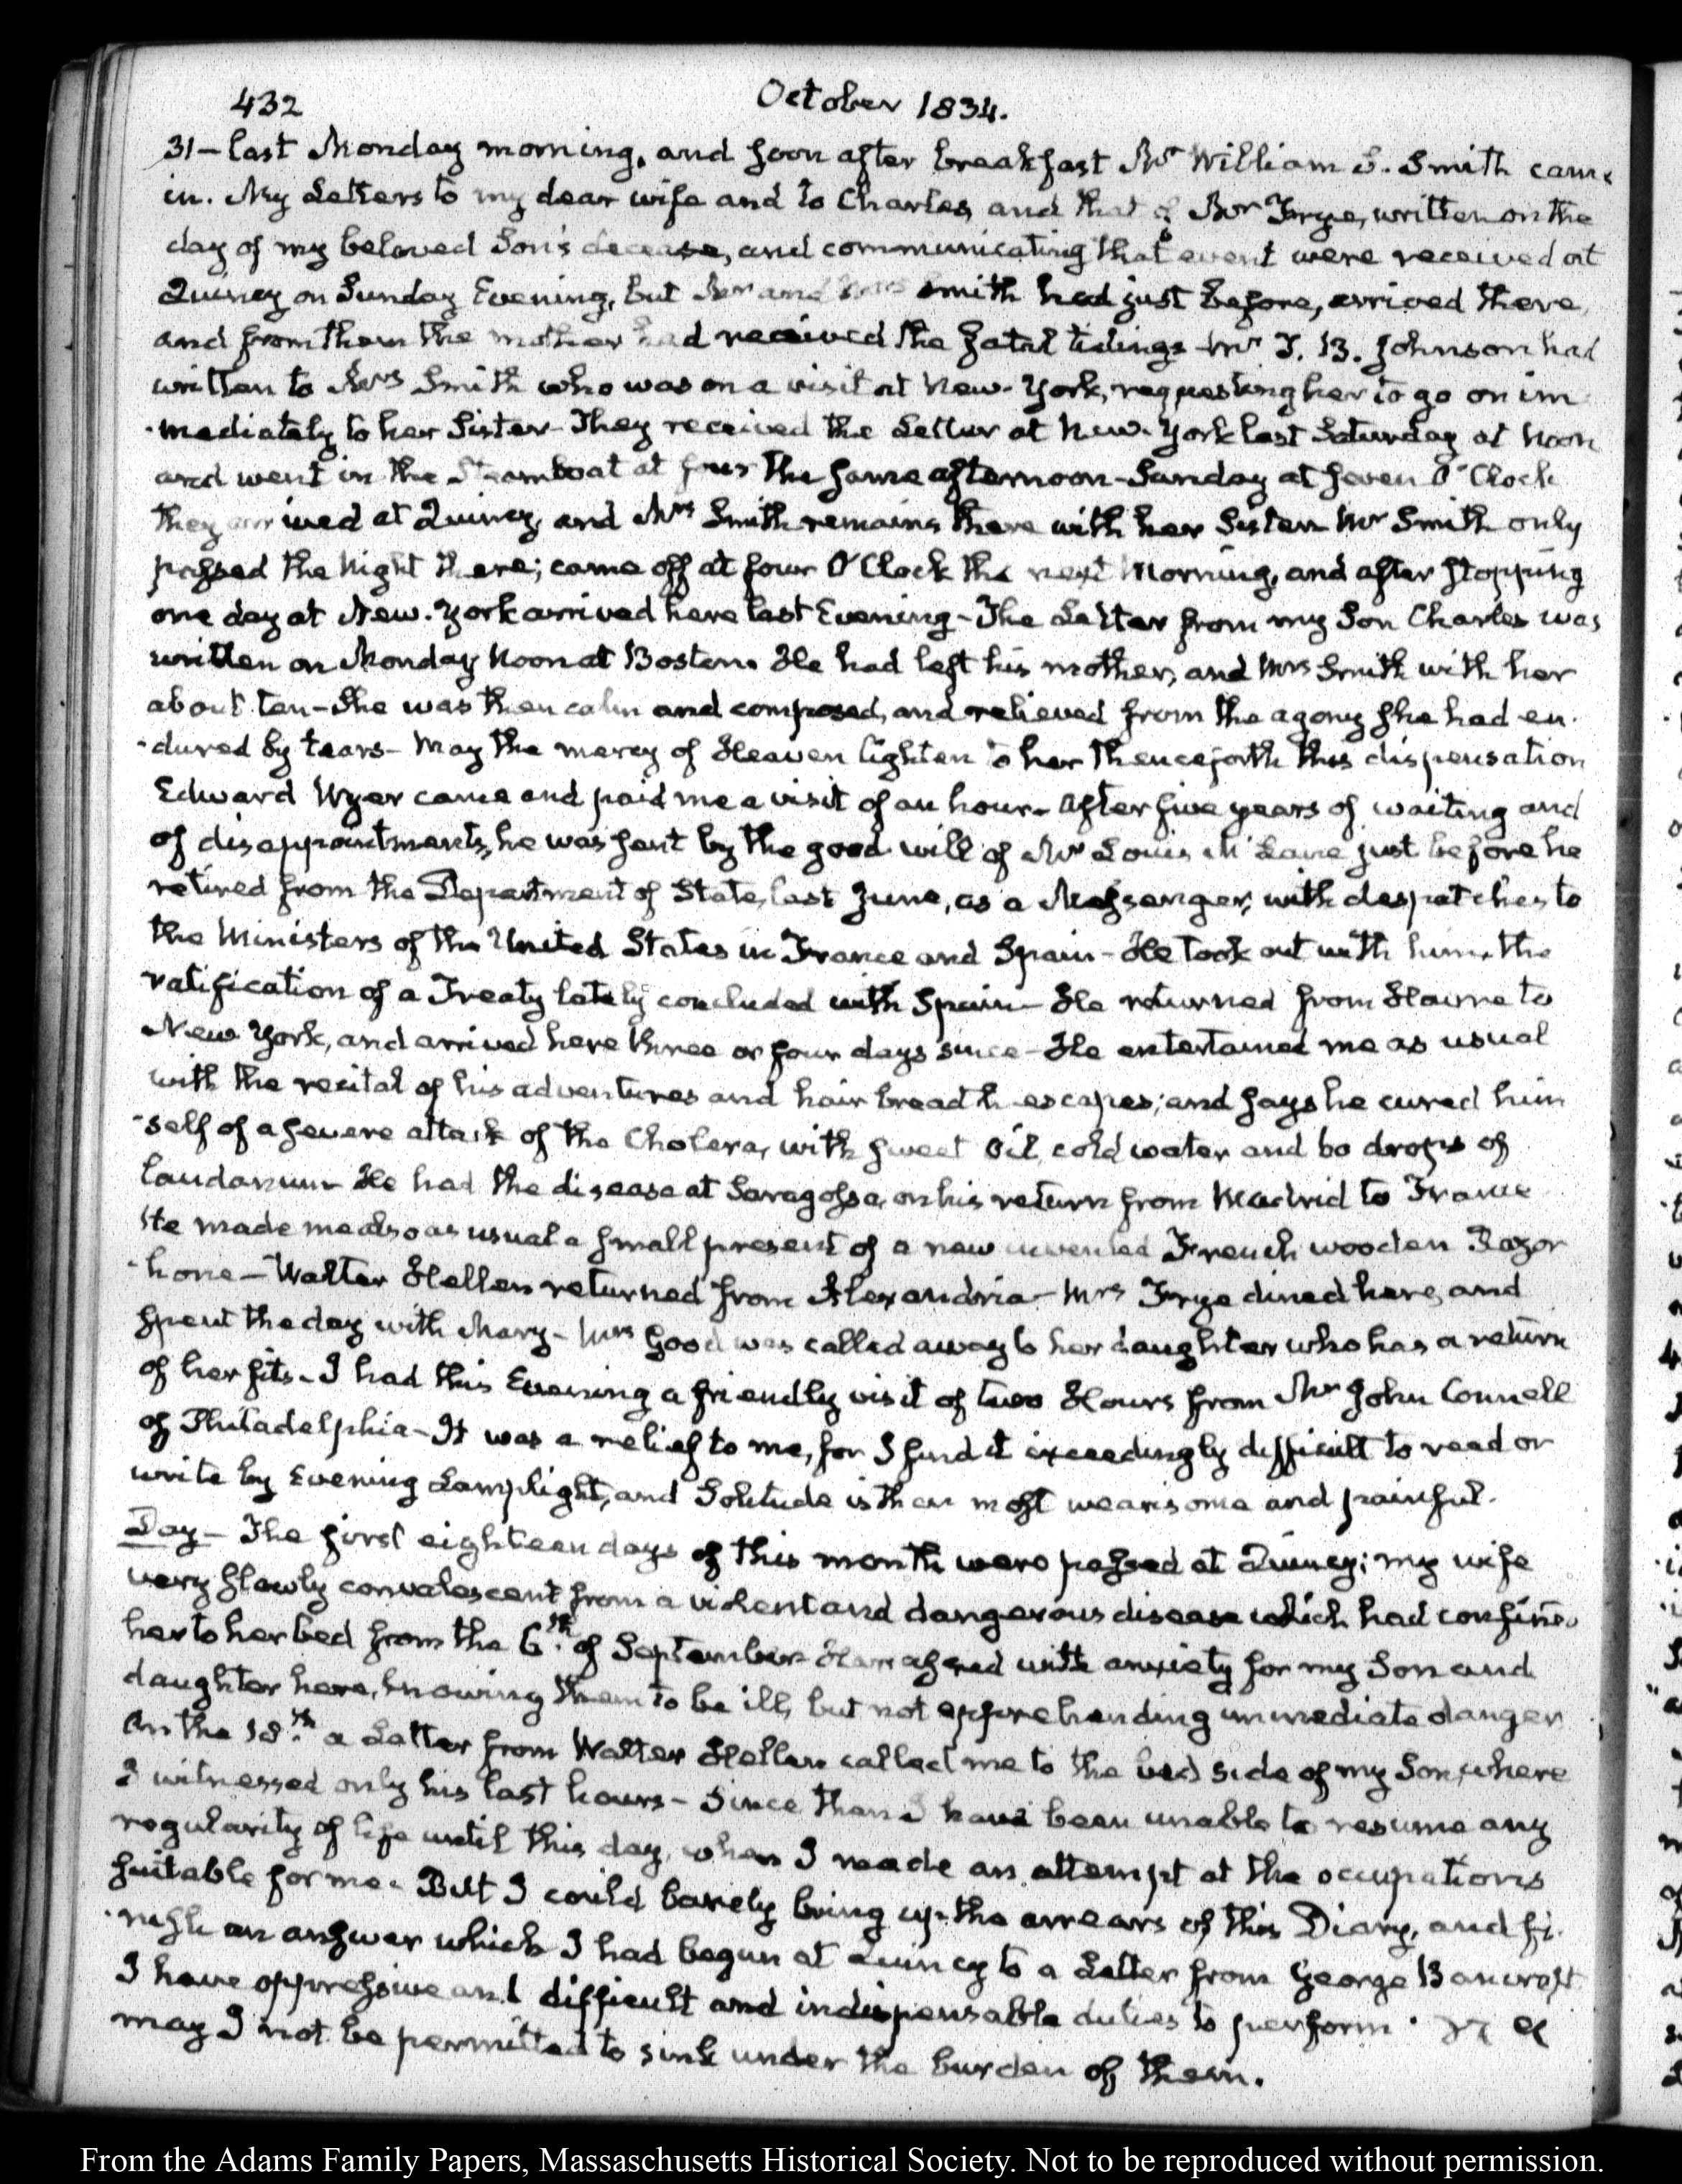 432
October 1834.
31— last Monday morning, and soon after breakfast Mr William S. Smith came
in. My Letters to my dear wife and to Charles, and that of Mr Frye, written on the
day of my beloved Son's decease, and communicating that event were received at
Quincy on Sunday Evening, but Mr and Mrs Smith had just before, arrived there,
and from them the mother had received the fatal tidings— Mr T. B. Johnson had
written to Mrs Smith who was on a visit at New-York, requesting her to go on im
-mediately to her Sister— They received the Letter at New-York last Saturday at Noon
and went in the Steamboat at four the same afternoon— Sunday at seven O'Clock
they arrived at Quincy, and Mrs Smith remains there with her Sister— Mr Smith only
passed the Night there; came off at four O'Clock the next Morning, and after stopping
one day at New-York arrived here last Evening— The Letter from my Son Charles was
written on Monday Noon at Boston. He had left his mother, and Mrs Smith with her
about ten— She was then calm and composed, and relieved from the agony she had en-
-dured by tears— May the mercy of Heaven lighten to her thenceforth this dispensation
Edward Wyer came and paid me a visit of an hour— After five years of waiting and
of disappointments, he was sent by the good will of Mr Louis McLane just before he
retired from the Department of State, last June, as a Messenger, with despatches to
the Ministers of the United States in France and Spain— He took out with him, the
ratification of a Treaty lately concluded with Spain— He returned from Havre to
New York, and arrived here three or four days since— He entertained me as usual
with the recital of his adventures and hair breadth escapes; and says he cured him
-self of a severe attack of the Cholera, with sweet Oil, cold water and 60 drops of
laudanum— He had the disease at Saragossa, on his return from Madrid to France
He made me also as usual a small present of a new invented French wooden Razor
-hone— Walter Hellen returned from Alexandria— Mrs Frye dined here, and
spent the day with Mary— Mrs Good was called away to her daughter who has a return
of her fits— I had this Evening a friendly visit of two Hours from Mr John Connell
of Philadelphia— It was a relief to me, for I find it exceedingly difficult to read or
write by Evening Lamplight, and Solitude is then most wearisome and painful.
Day— The first eighteen days of this month were passed at Quincy; my wife
very slowly convalescent from a violent and dangerous disease which had confined
her to her bed from the 6th of September— Harrassed with anxiety for my Son and
daughter here, knowing them to be ill, but not apprehending immediate danger
On the 18th a Letter from Walter Hellen called me to the bed side of my Son, where
I witnessed only his last hours— Since then I have been unable to resume any
regularity of life until this day, when I made an attempt at the occupations
suitable for me— But I could barely bring up the arrears of this Diary, and fi-
-nish an answer which I had begun at Quincy to a Letter from George Bancroft
I have oppressive and difficult and indispensable duties to perform.
may I not be permitted to sink under the burden of them.
From the Adams Family Papers, Massachusetts Historical Society. Not to be reproduced without permission.